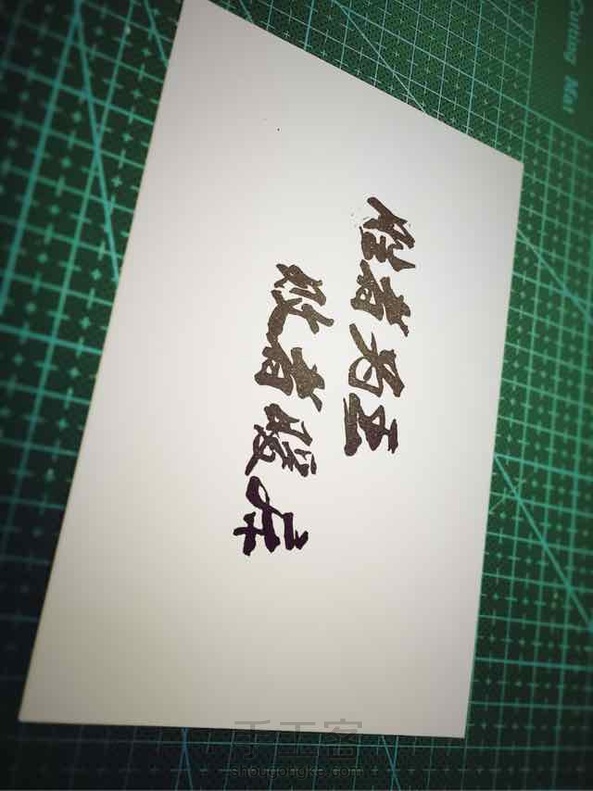 胜者为王
败者暖床
Cutting Mat
手工客
shougongke.com